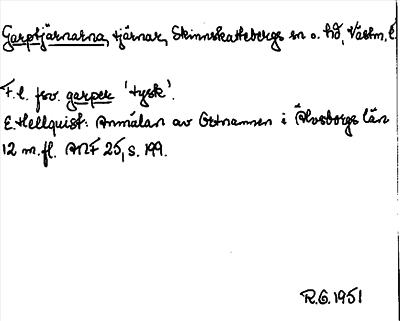 Garptjärnarna, tjärnar, Skinnskattebergs sn o. hd, Västm. l.
F.l. fsv. garper 'tysk'.
E. Hellquist: Anmälan av Ortnamnen i Älvsborgs län
12 m.fl. ANF 25, s. 199.
R.G. 1951